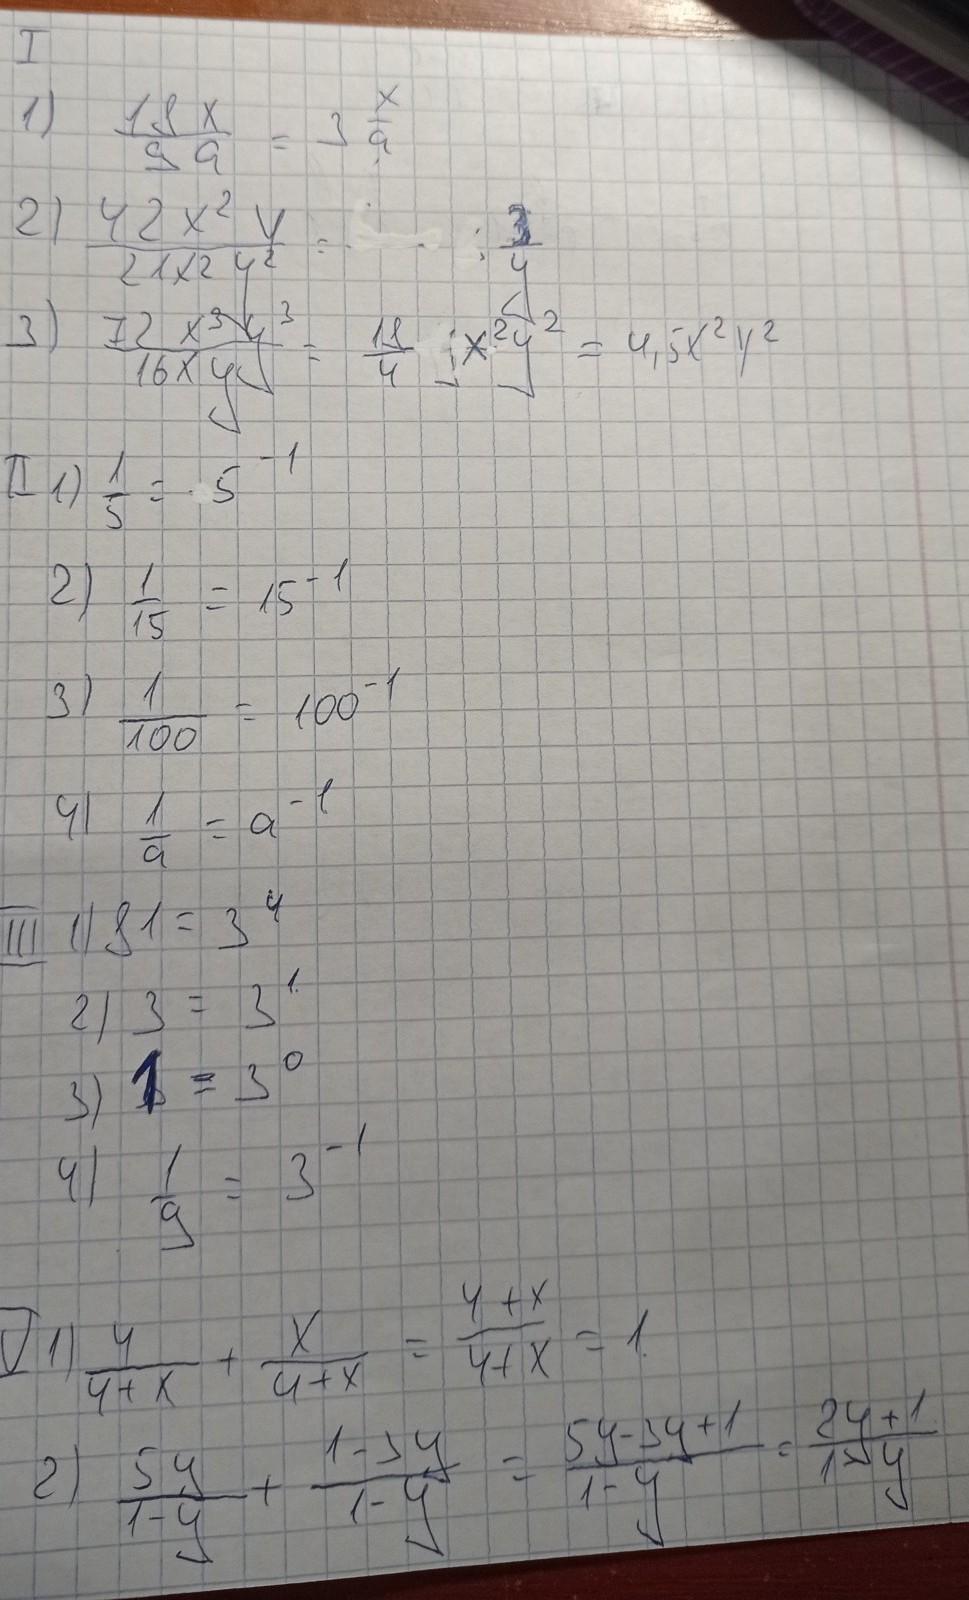 I
1) 18x/9a = 3 x/a
2) 42x²y/21x2y² = 3/y
3) 72x³y³/16xy = 18/4 x²y² = 4,5x²y²
II 1) 1/5 = 5⁻¹
2) 1/15 = 15⁻¹
3) 1/100 = 100⁻¹
4) 1/a = a⁻¹
III 1) 81 = 3⁴
2) 3 = 3¹
3) 1 = 3⁰
4) 1/9 = 3⁻¹
V 1) 4/(4+x) + x/(4+x) = (4+x)/(4+x) = 1.
2) 5y/(1-y) + (1-3y)/(1-y) = (5y-3y+1)/(1-y) = (2y+1)/(1-y)